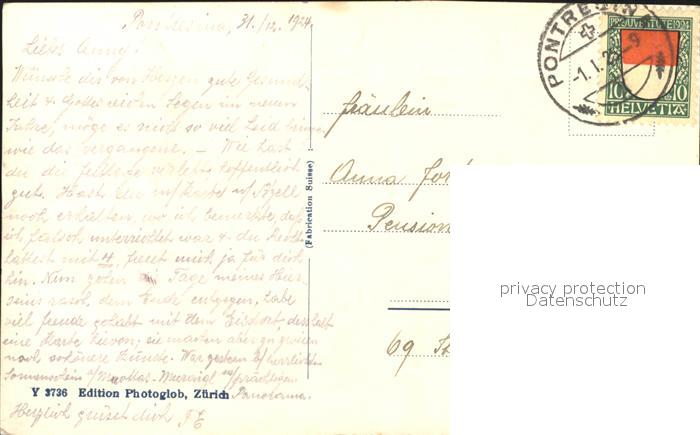 Pontresina, 31./12. 1924.
Liebs Anny.
Wünsche dir von Herzen gute Gesund-
heit & Gottes reichen Segen im neuen
Jahre, möge es nicht so viel Leid
wie das vergangene. – Wie hast
du die Festtage verlebt hoffentlich
gut. Hast
noch erhalten, wo ich bemerkte, daß
ich falsch unterrichtet war & du
mit 4, freut mich ja für dich
hin. Nun gehen die Tage meines Hier-
seins rasch dem Ende entgegen, habe
viel Freude gehabt mit dem Eissport, deshalb
eine Karte hievon; sie machen aber
noch schönere Künste. War gestern b/ herrlichem
Sonnenschein a/ Muottas-Muraigl m/ prächtigem
Panorama.
Herzlich grüsst dich
Y 3736 Edition Photoglob, Zürich
(Fabrication Suisse)
PONTRESINA
-1.I.25-9
PRO JUVENTUTE 1924
10 10
HELVETIA
Fräulein
Anna
Pension
69
privacy protection
Datenschutz